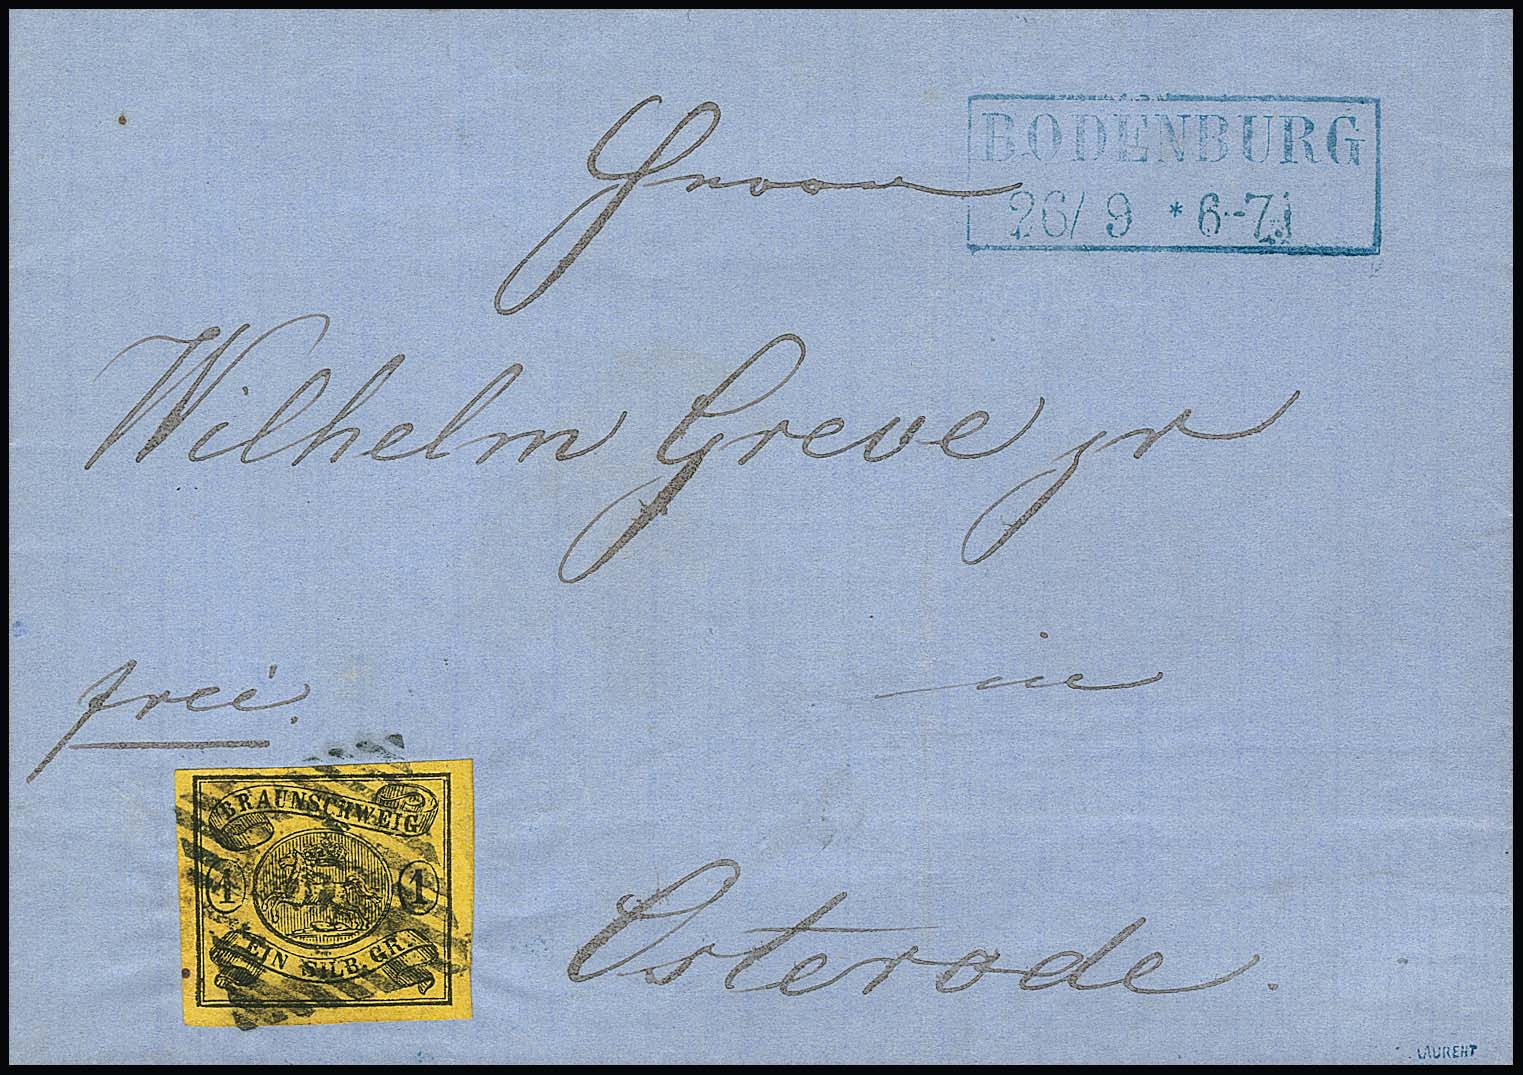 BODENBURG
26/ 9 * 6-7
Wilhelm Greve jr
in
frei.
BRAUNSCHWEIG
1 1
EIN SILB. GR.
Osterode.
LAURENT